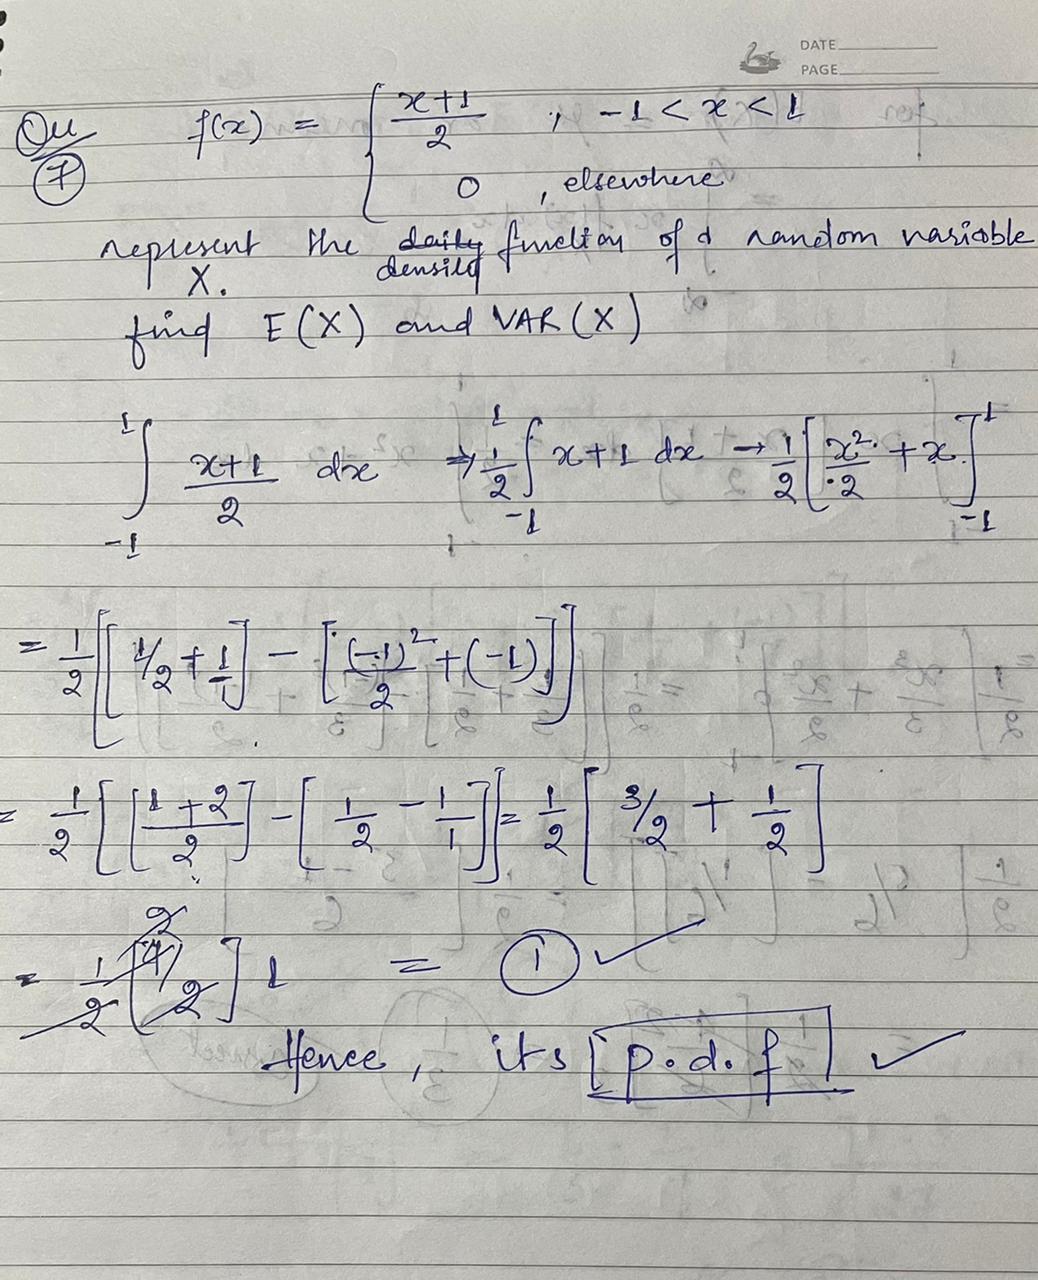 DATE
PAGE
Qu 7 f(x) = { x+1/2 ; -1 < x < 1
0 , elsewhere
represent the daily density function of a random variable
X.
find E(X) and VAR(X)
∫_{-1}^{1} x+1/2 dx ⇒ 1/2 ∫_{-1}^{1} x+1 dx → 1/2 [x²/2 + x]_{-1}^{1}
= 1/2 [[1/2 + 1/1] - [(-1)²/2 + (-1)]]
= 1/2 [[1+2/2] - [1/2 - 1/1]] = 1/2 [3/2 + 1/2]
= 1/2 [4/2] 2 1 = 1 ✓
Hence, its p.d.f ✓